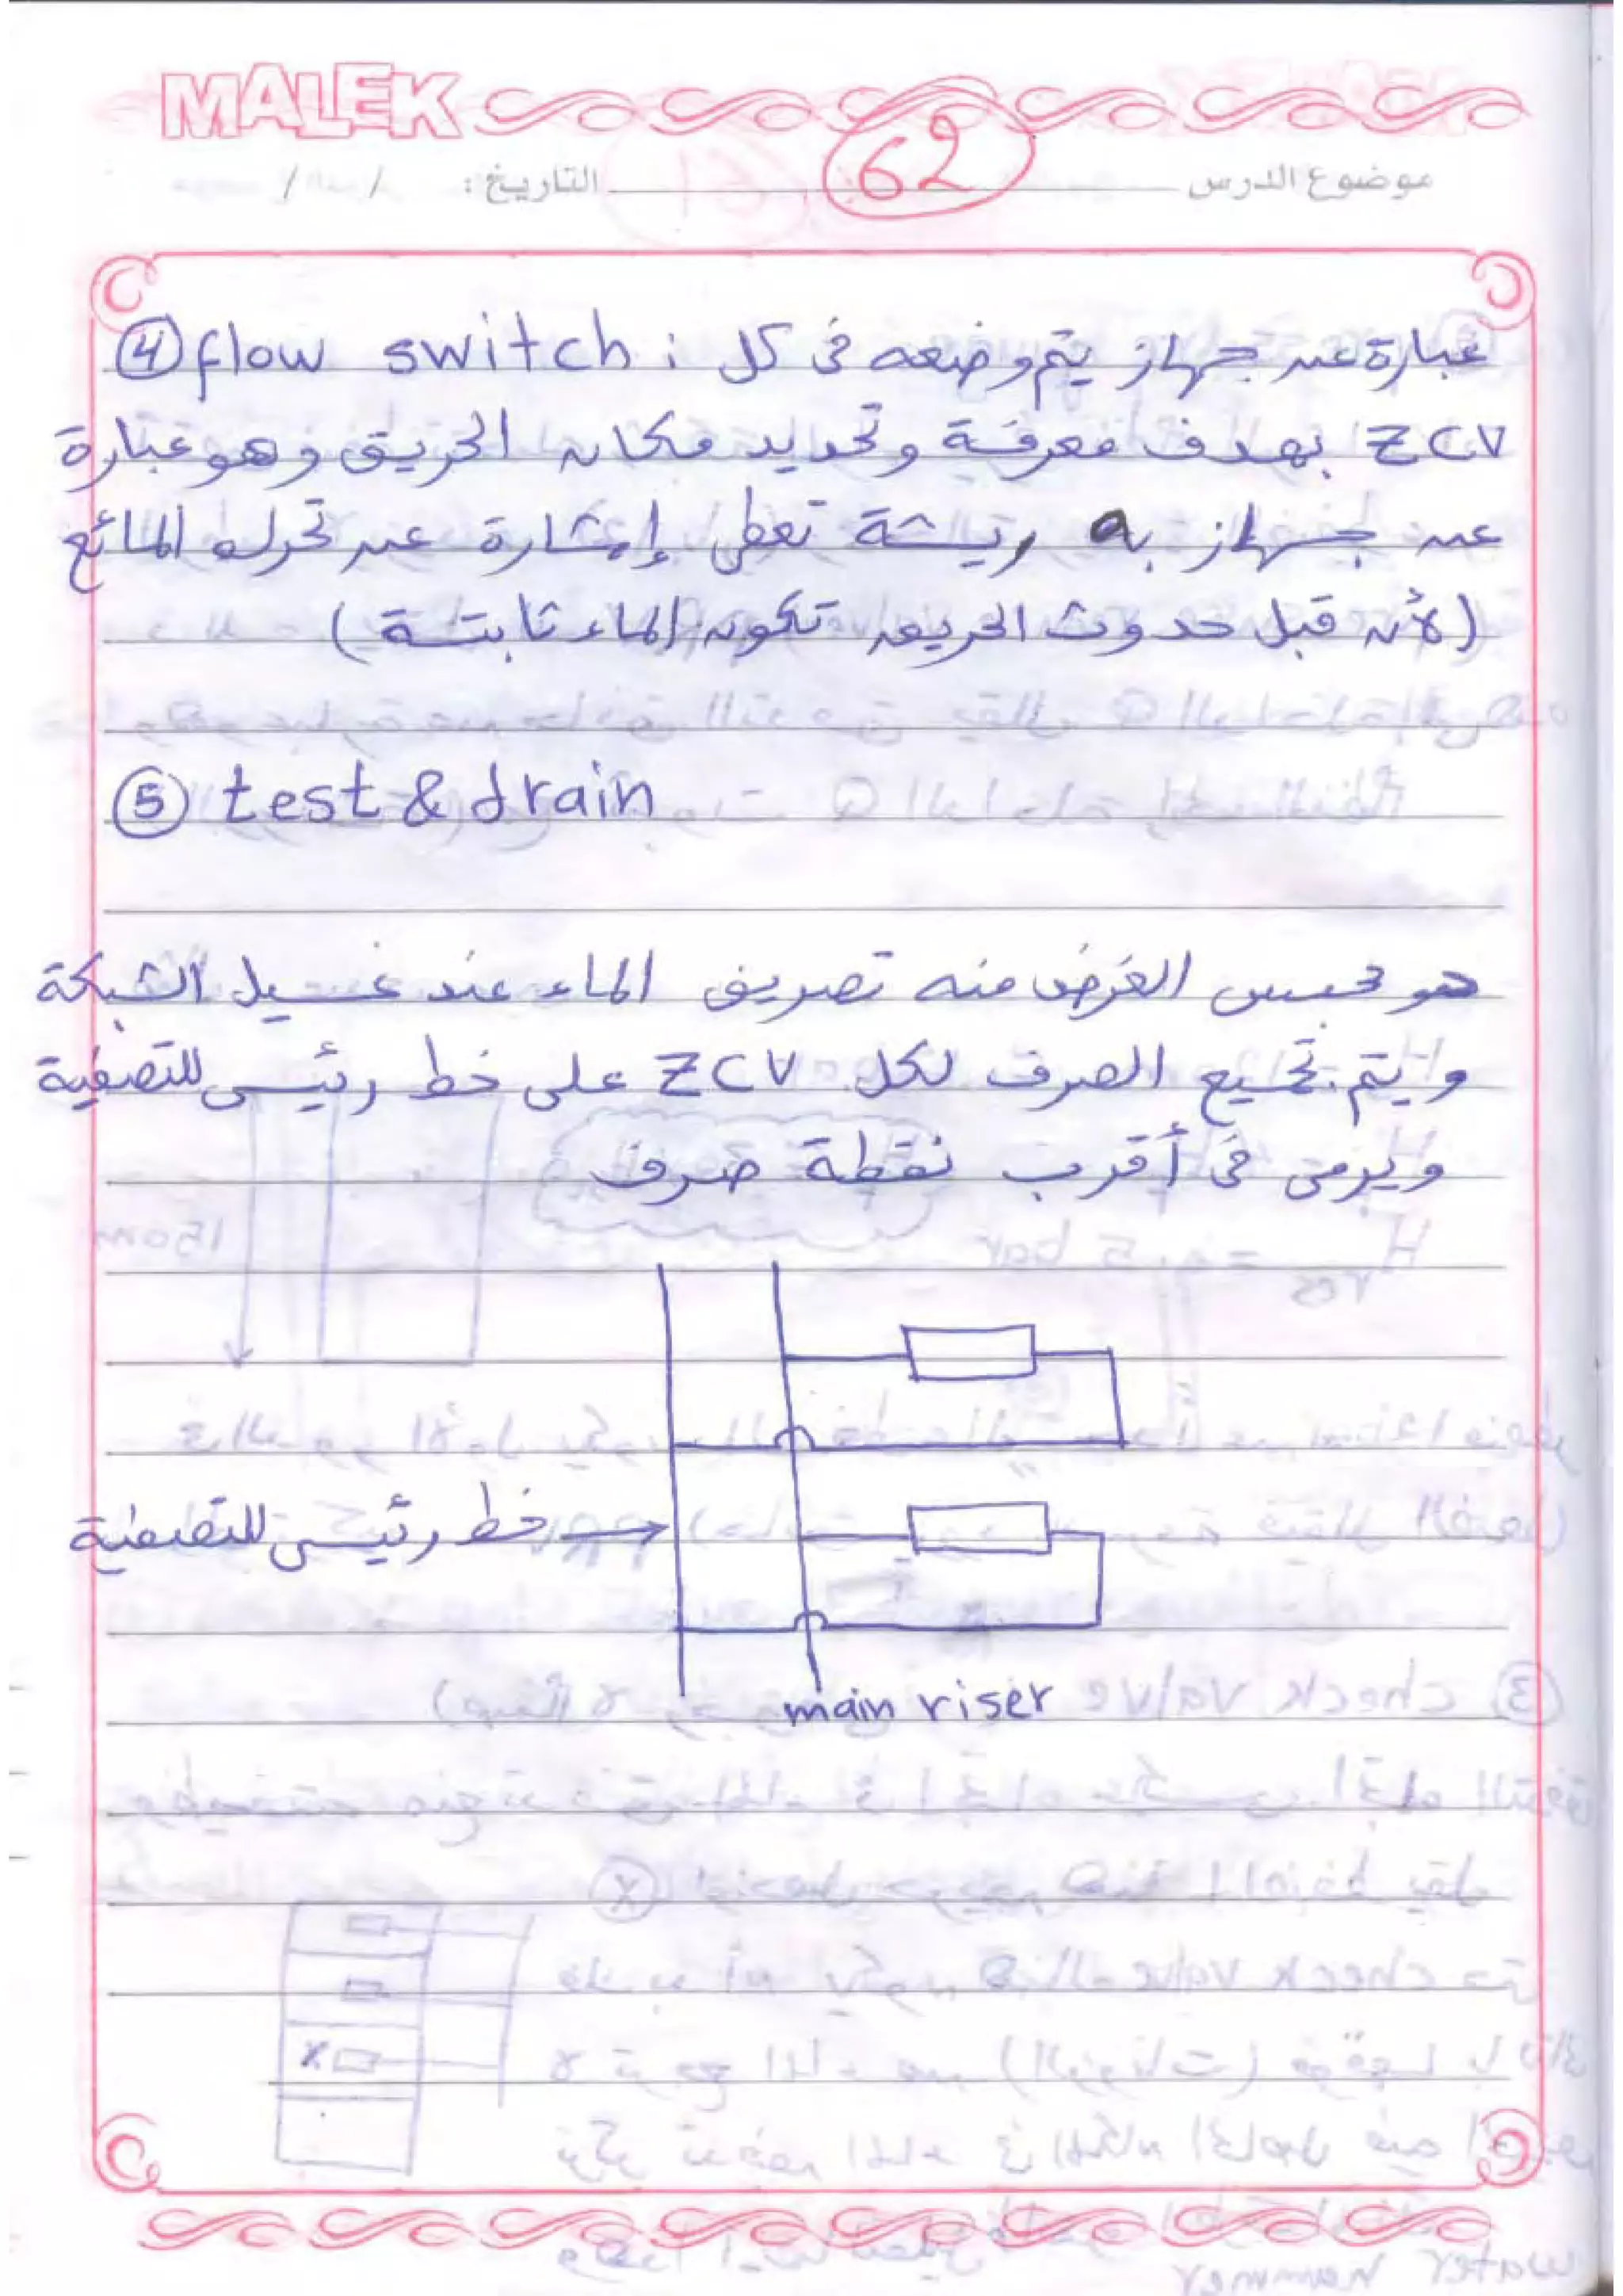 MALEK
62
موضوع الدرس التاريخ: / /
④ flow switch : عبارة عن جهاز يتم وضعه فى كل
ZCV بهدف معرفة وتحديد مكان الحريق وهو عبارة
عن جهاز به ريشة تعطى إشارة عند تحرك المائع
(لأن قبل حدوث الحريق تكون الماء ثابتة)
⑤ test & drain
هو محبس الغرض منه تصريف الماء عند غسيل الشبكة
ويتم تجميع الصرف لكل ZCV على خط رئيسى للتصفية
ويرمى فى أقرب نقطة صرف
خط رئيسى للتصفية
main riser